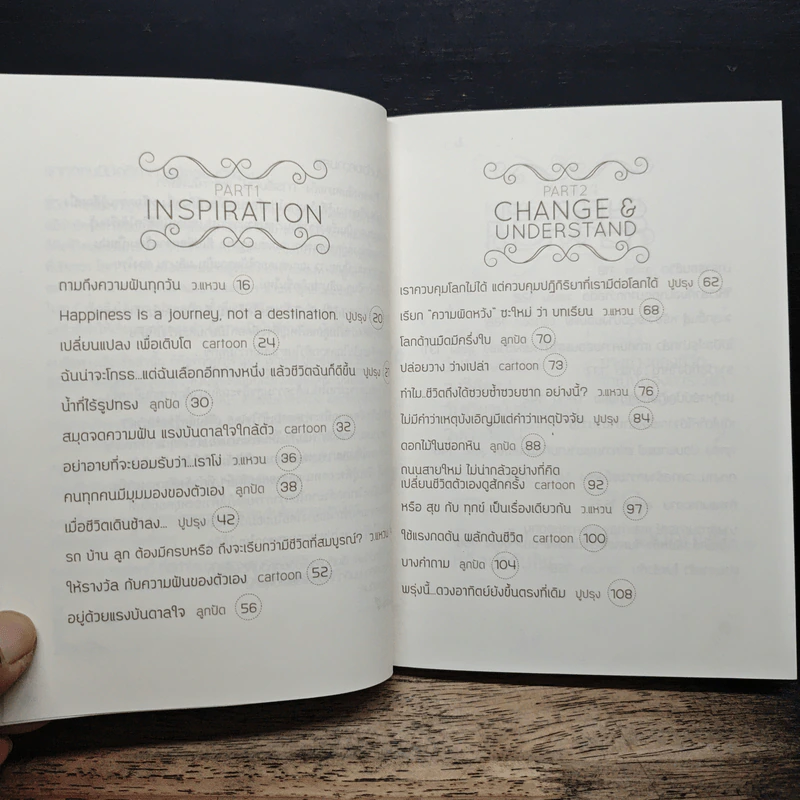 PART1
INSPIRATION
ถามถึงความฝันทุกวัน ว.แหวน 16
Happiness is a journey, not a destination. ปูปรุง 20
เปลี่ยนแปลง เพื่อเติบโต cartoon 24
ฉันน่าจะโกรธ...แต่ฉันเลือกอีกทางหนึ่ง แล้วชีวิตฉันก็ดีขึ้น ปูปรุง
น้ำที่ไร้รูปทรง ลูกปัด 30
สมุดจดความฝัน แรงบันดาลใจใกล้ตัว cartoon 32
อย่าอายที่จะยอมรับว่า...เราโง่ ว.แหวน 36
คนทุกคนมีมุมมองของตัวเอง ลูกปัด 38
เมื่อชีวิตเดินช้าลง... ปูปรุง 42
รถ บ้าน ลูก ต้องมีครบหรือ ถึงจะเรียกว่ามีชีวิตที่สมบูรณ์? ว.แหวน
ให้รางวัล กับความฝันของตัวเอง cartoon 52
อยู่ด้วยแรงบันดาลใจ ลูกปัด 56
PART2
CHANGE &
UNDERSTAND
เราควบคุมโลกไม่ได้ แต่ควบคุมปฏิกิริยาที่เรามีต่อโลกได้ ปูปรุง 62
เรียก "ความผิดหวัง" ซะใหม่ ว่า บทเรียน ว.แหวน 68
โลกด้านมืดมีครึ่งใบ ลูกปัด 70
ปล่อยวาง ว่างเปล่า cartoon 73
ทำไม..ชีวิตถึงได้ซวยซ้ำซวยซาก อย่างนี้? ว.แหวน 76
ไม่มีคำว่าเหตุบังเอิญมีแต่คำว่าเหตุปัจจัย ปูปรุง 84
ดอกไม้ในซอกหิน ลูกปัด 88
ถนนสายใหม่ ไม่น่ากลัวอย่างที่คิด
เปลี่ยนชีวิตตัวเองดูสักครั้ง cartoon 92
หรือ สุข กับ ทุกข์ เป็นเรื่องเดียวกัน ว.แหวน 97
ใช้แรงกดดัน ผลักดันชีวิต cartoon 100
บางคำถาม ลูกปัด 104
พรุ่งนี้...ดวงอาทิตย์ยังขึ้นตรงที่เดิม ปูปรุง 108